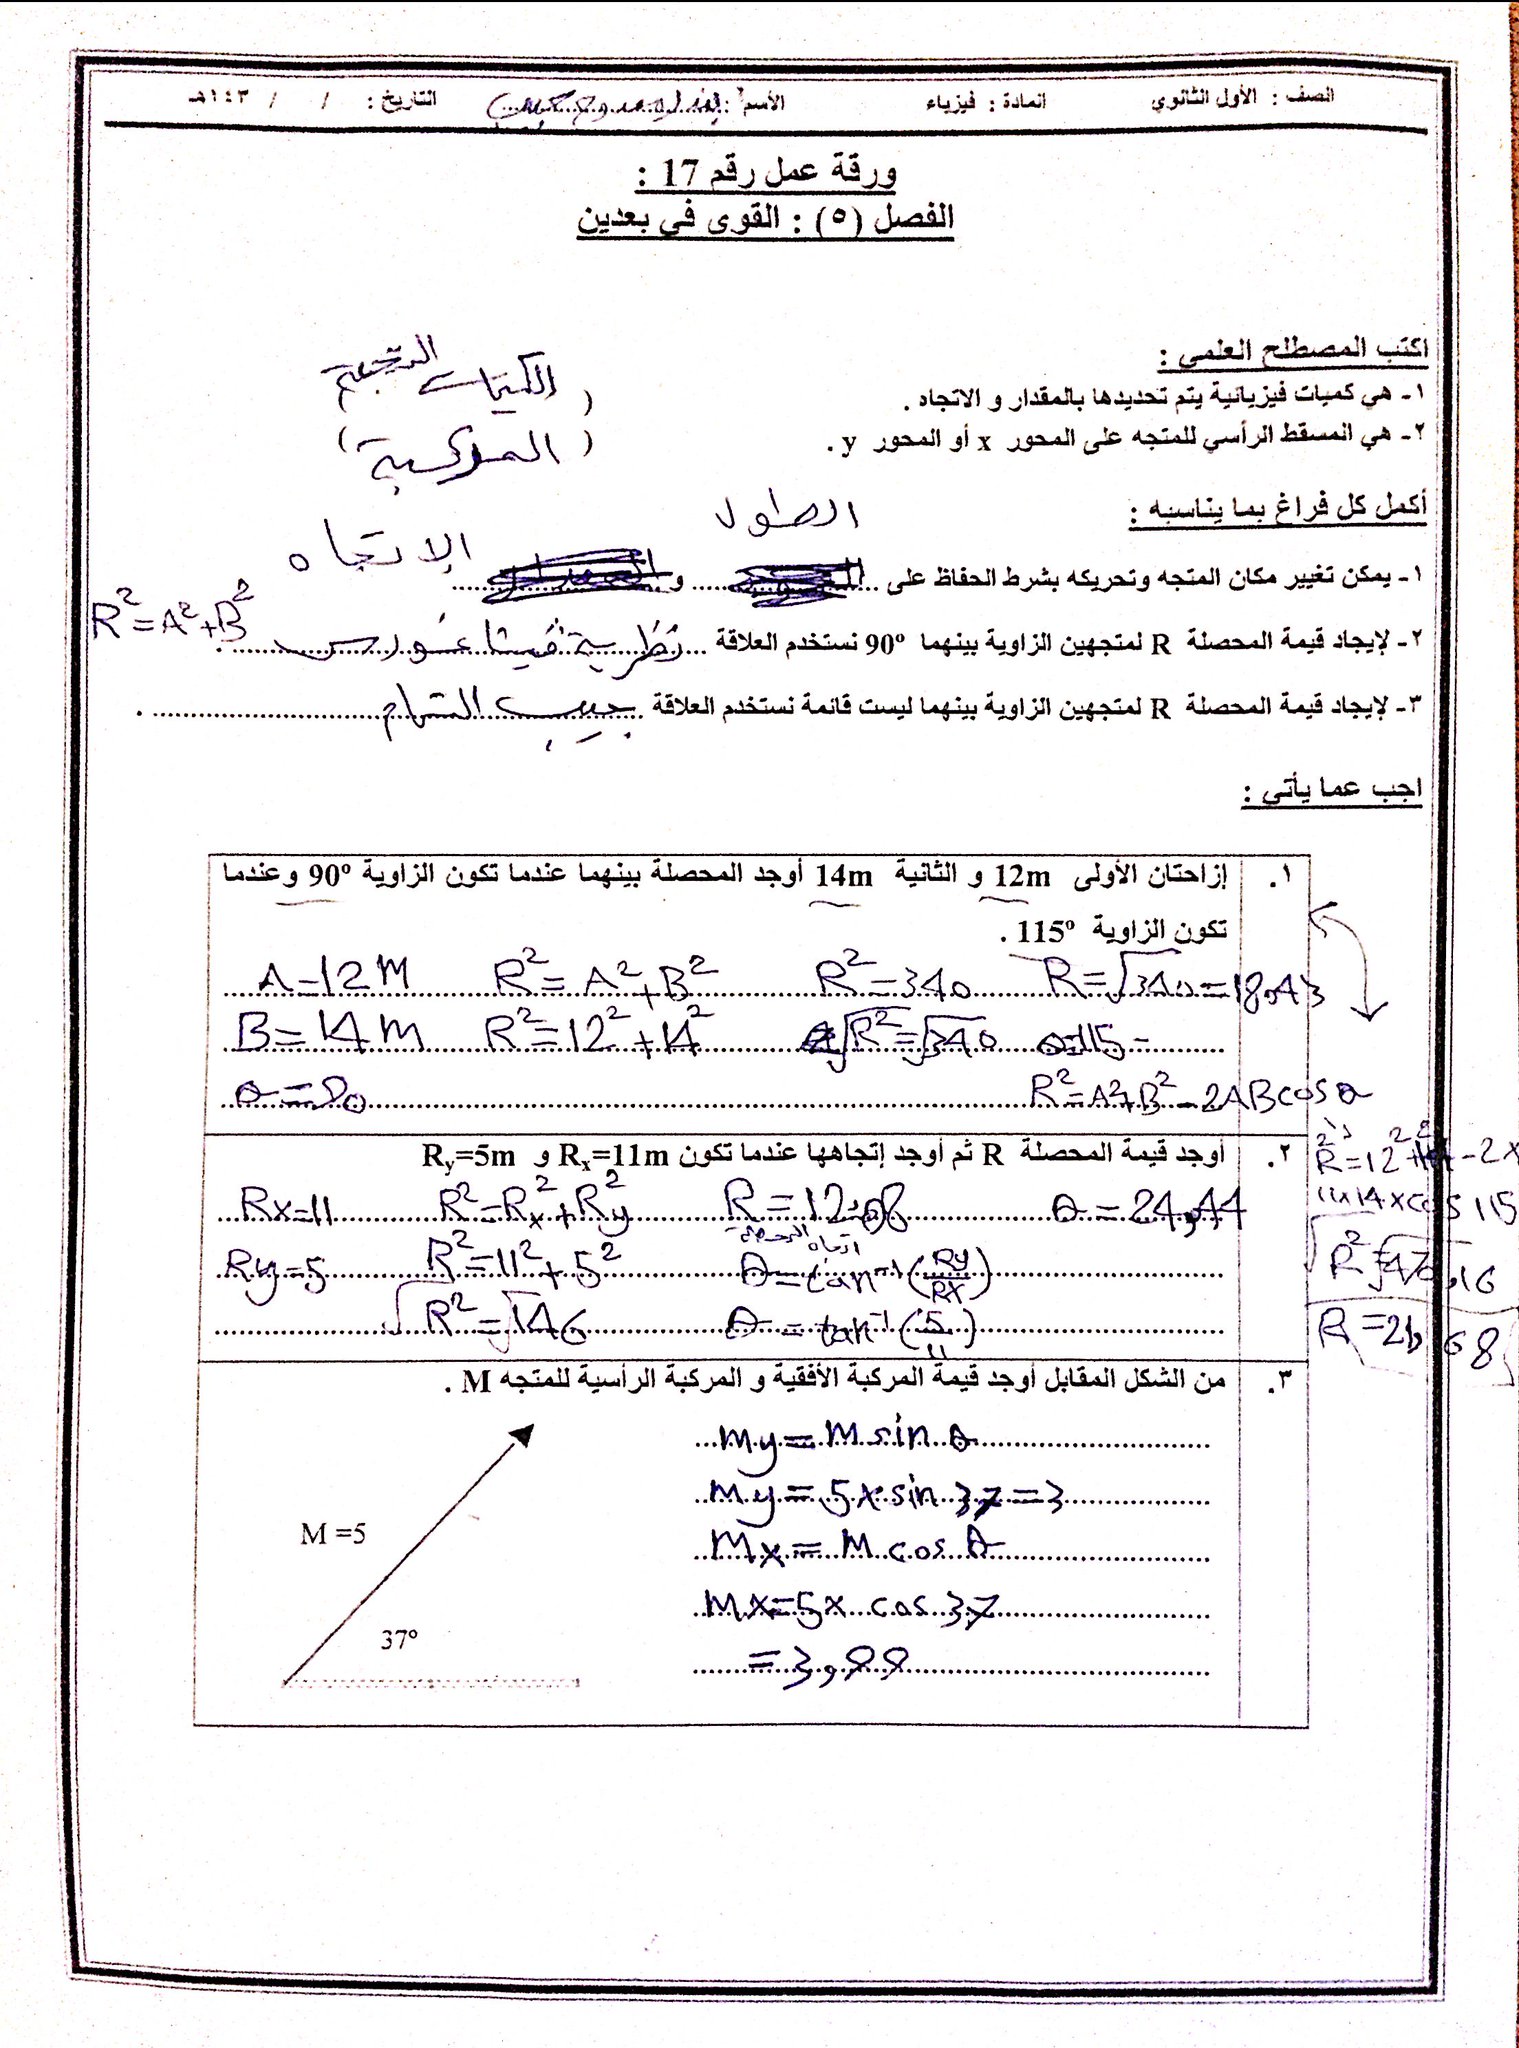 الصف : الأول الثانوي المادة : فيزياء الأسم : التاريخ : / / ١٤٣هـ
ورقة عمل رقم 17 :
الفصل (٥) : القوى في بعدين
اكتب المصطلح العلمي :
١- هي كميات فيزيائية يتم تحديدها بالمقدار و الاتجاه . ( الكميات المتجهة )
٢- هي المسقط الرأسي للمتجه على المحور x أو المحور y . ( المركبة )
أكمل كل فراغ بما يناسبه :
١- يمكن تغيير مكان المتجه وتحريكه بشرط الحفاظ على الطول و الاتجاه
٢- لإيجاد قيمة المحصلة R لمتجهين الزاوية بينهما 90º نستخدم العلاقة نظرية فيثاغورس R²=A²+B²
٣- لإيجاد قيمة المحصلة R لمتجهين الزاوية بينهما ليست قائمة نستخدم العلاقة جيب التمام .
اجب عما يأتي :
١. إزاحتان الأولى 12m و الثانية 14m أوجد المحصلة بينهما عندما تكون الزاوية 90º وعندما
تكون الزاوية 115º .
A=12M R²=A²+B² R²=340 R=√340=18,43
B=14M R²=12²+14² √R²=√340 θ=115
θ=90 R²=A²+B²-2ABcosθ
R²=12²+14²-2x
12x14xcos 115
√R²=√470,16
R=21,68
٢. أوجد قيمة المحصلة R ثم أوجد إتجاهها عندما تكون Rx=11m و Ry=5m
Rx=11 R²=Rx²+Ry² R=12,08 θ=24,44
اتجاه المحصلة
Ry=5 R²=11²+5² θ=tan⁻¹(Ry/Rx)
√R²=√146 θ=tan⁻¹(5/11)
٣. من الشكل المقابل أوجد قيمة المركبة الأفقية و المركبة الرأسية للمتجه M .
My=M sin θ
My=5x sin 37=3
M =5
Mx=M cos θ
Mx=5x cos 37
37º
=3,99